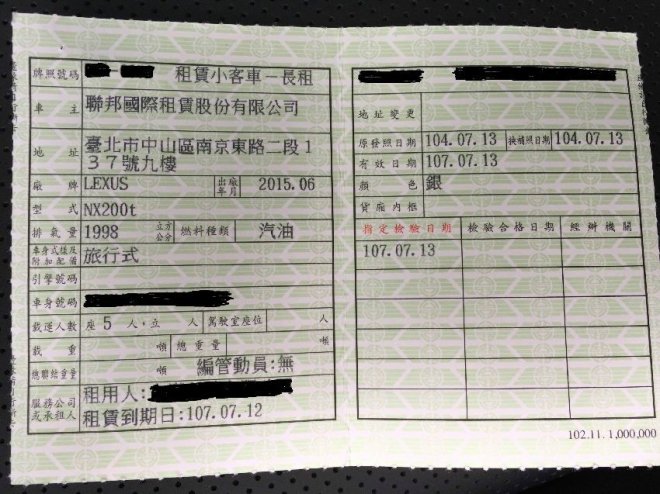 牌照號碼 租賃小客車－長租
車主 聯邦國際租賃股份有限公司
地址 臺北市中山區南京東路二段1
37號九樓
廠牌 LEXUS 出廠年月 2015.06
型式 NX200t
排氣量 1998 立方公分 燃料種類 汽油
車身式樣及附加配備 旅行式
引擎號碼
車身號碼
載運人數 座 5 人,立 人 駕駛室座位 人
載重 噸 總重量 噸
總聯結重量 噸 編管動員:無
服務公司或承租人 租用人:
租賃到期日:107.07.12
地址變更
原發照日期 104.07.13 換補照日期 104.07.13
有效日期 107.07.13
顏色 銀
貨廂內框
指定檢驗日期 檢驗合格日期 經辦機關
107.07.13
102.11. 1,000,000